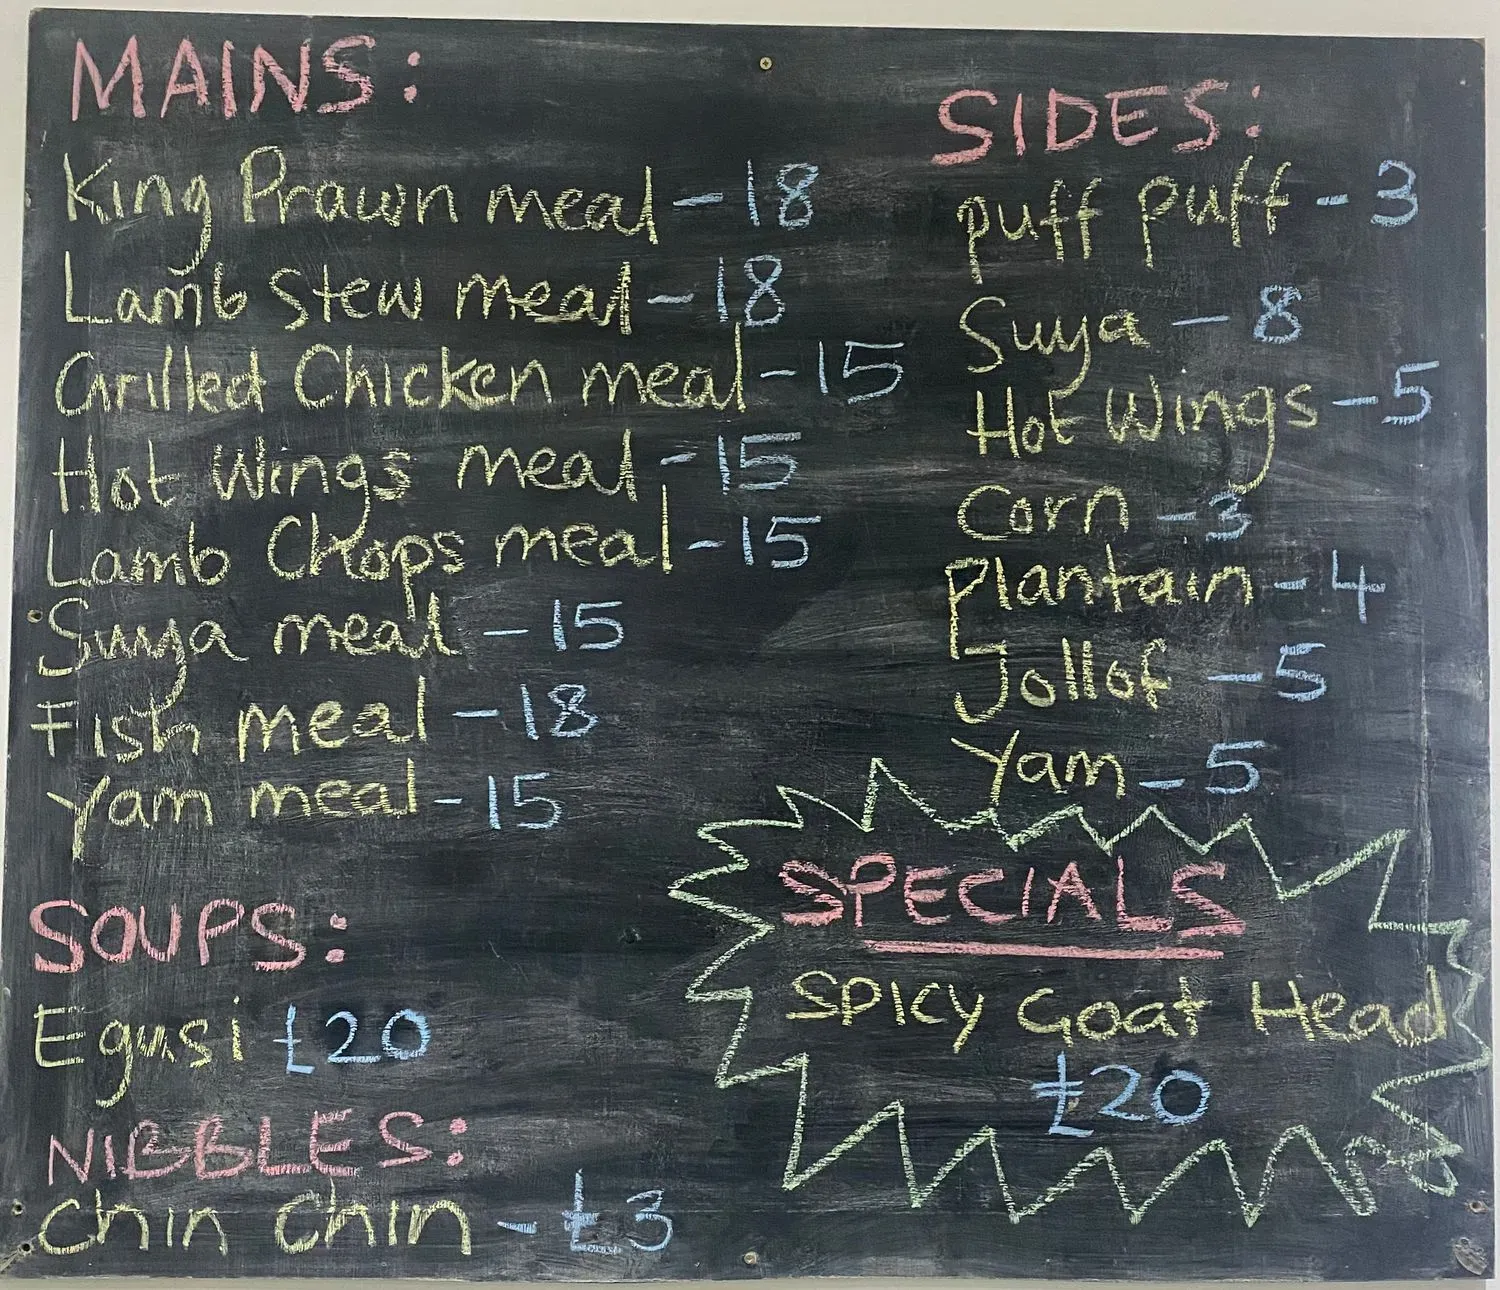 MAINS:
King Prawn meal - 18
Lamb stew meal - 18
Grilled Chicken meal - 15
Hot Wings meal - 15
Lamb Chops meal - 15
Suya meal - 15
Fish meal - 18
Yam meal - 15
SOUPS:
Egusi £20
NIBBLES:
Chin Chin - £3
SIDES:
puff puff - 3
Suya - 8
Hot Wings - 5
Corn - 3
Plantain - 4
Jollof - 5
Yam - 5
SPECIALS
SPICY Goat Head
£20